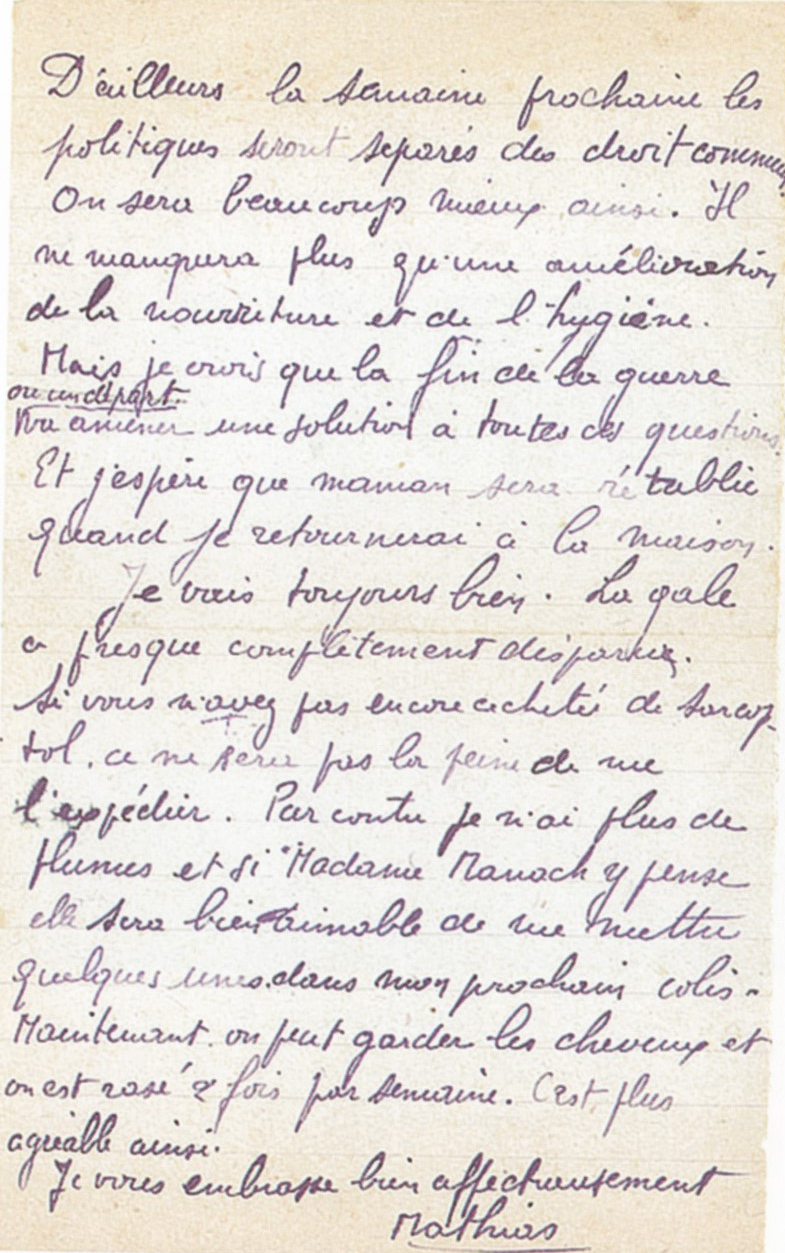 D'ailleurs la semaine prochaine les
politiques seront séparés des droit commun.
On sera beaucoup mieux ainsi. Il
ne manquera plus qu'une amélioration
de la nourriture et de l'hygiène.
Mais je crois que la fin de la guerre
ou un départ.
va amener une solution à toutes ces questions.
Et j'espère que maman sera rétablie
quand je retournerai à la maison.
Je vais toujours bien. La gale
a presque complètement disparue.
Si vous n'avez pas encore acheté de Sarcop-
tol, ce ne sera pas la peine de me
l'expédier. Par contre je n'ai plus de
plumes et si Madame Manach y pense
elle sera bien aimable de me mettre
quelques unes dans mon prochain colis.
Maintenant on peut garder les cheveux et
on est rasé 2 fois par semaine. C'est plus
agréable ainsi.
Je vous embrasse bien affectueusement
Mathias